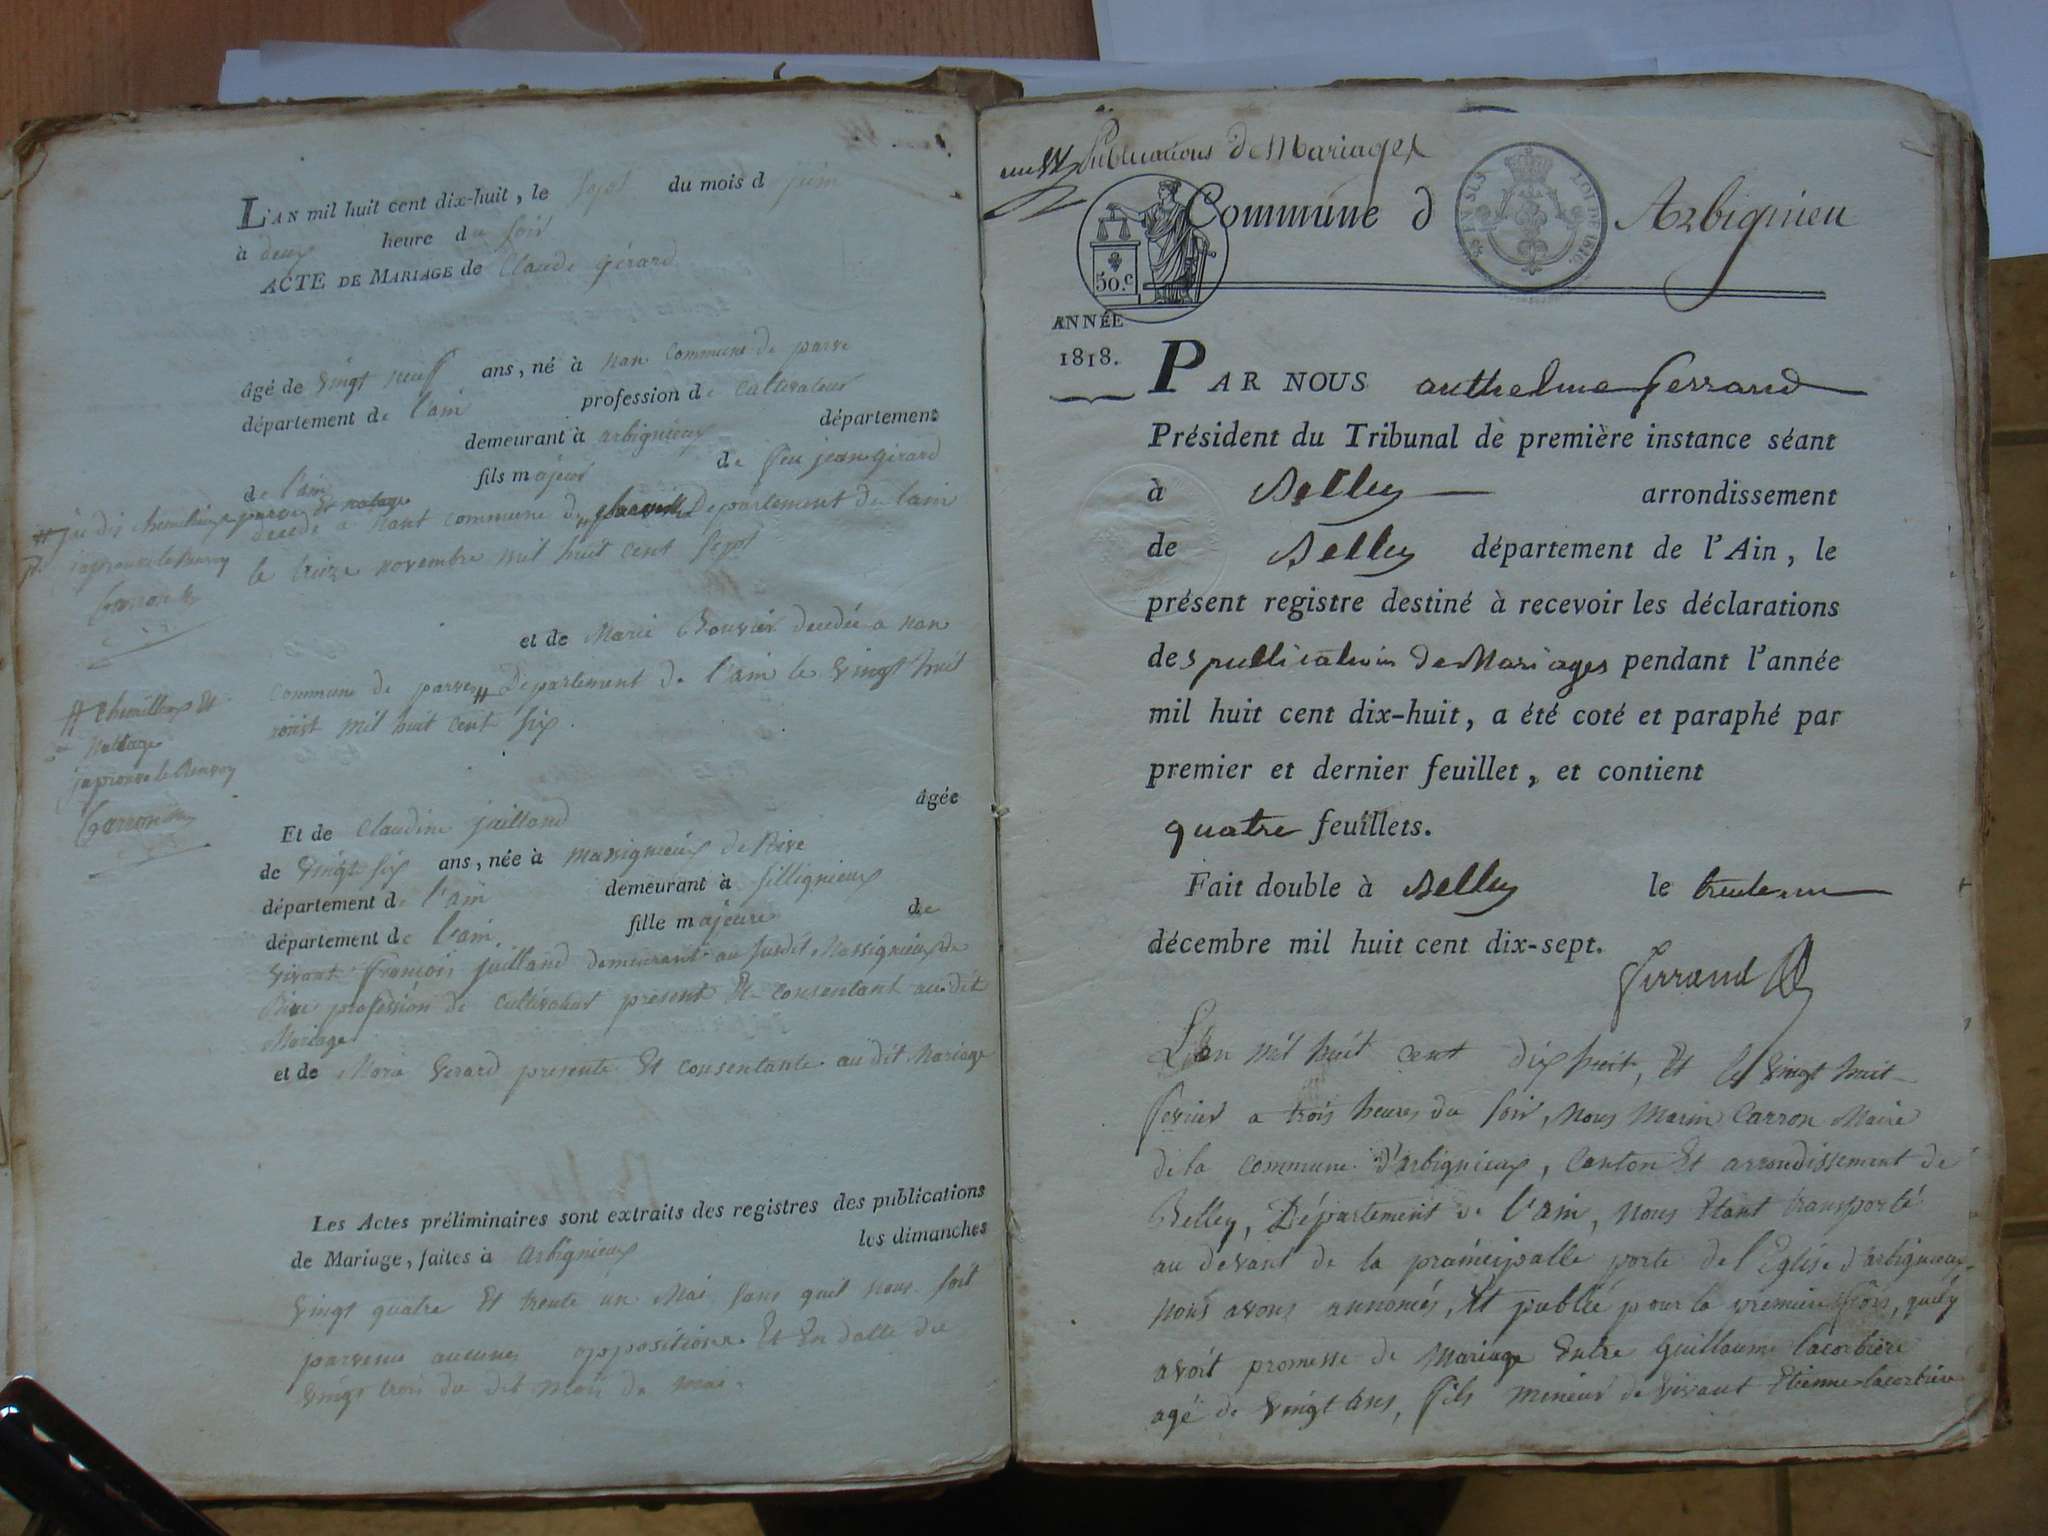 L'AN mil huit cent dix-huit, le sept du mois d juin
à deux heure du soir
ACTE DE MARIAGE de Claude gérard
âgé de vingt neuf ans, né à nan commune de parve
département de l'ain profession de cultivateur
demeurant à arbignieux département
de l'ain fils majeur de feu jean gérard
décédé à nant commune de Departement de lain
le treize novembre mil huit cent sept
et de Marie Bouvier décédée a nan
commune de parves # Departement de l'ain le vingt huit
mil huit cent six.
# chemillieux et
nattage
japrouve le Renvoy
Carron
âgée
Et de Claudine juilland
de vingt six ans, née à massignieux de Rive
département de l'ain demeurant à sillignieux
département de l'ain. fille majeure de
vivant François juilland demeurant au susdit Massignieux de
Rive profession de cultivateur présent Et consentant au dit
Mariage
et de Marie Gerard presente Et consentante au dit Mariage
Les Actes préliminaires sont extraits des registres des publications
de Mariage, faites à arbignieux les dimanches
vingt quatre Et trente un Mai sans quil nous soit
parvenu aucunes oppositions. Et En datte du
vingt trois du dit mois de mai.
Publications de Mariages
Commune d Arbignieu
TIMBRE LOI DE 1816.
50.c
ANNÉE
1818.
PAR NOUS anthelme ferrand
Président du Tribunal de première instance séant
à Belley arrondissement
de Belley département de l'Ain, le
présent registre destiné à recevoir les déclarations
des publications de Mariages pendant l'année
mil huit cent dix-huit, a été coté et paraphé par
premier et dernier feuillet, et contient
quatre feuillets.
Fait double à Belley le trente un
décembre mil huit cent dix-sept.
Ferrand
L'an mil huit cent dix huit, Et le vingt huit
fevrier a trois heures du soir, Nous Marin Carron Maire
de la commune d'arbignieux, Canton Et arrondissement de
Belley, Département de l'ain, nous Etant transporté
au devant de la principalle porte de l'Eglise d'arbignieux
nous avons annoncés, Et publié pour la premiere fois, quily
avoit promesse de Mariage Entre Guillaume lacorbiere
agé de vingt ans, fils mineur de vivant Etienne lacorbiere